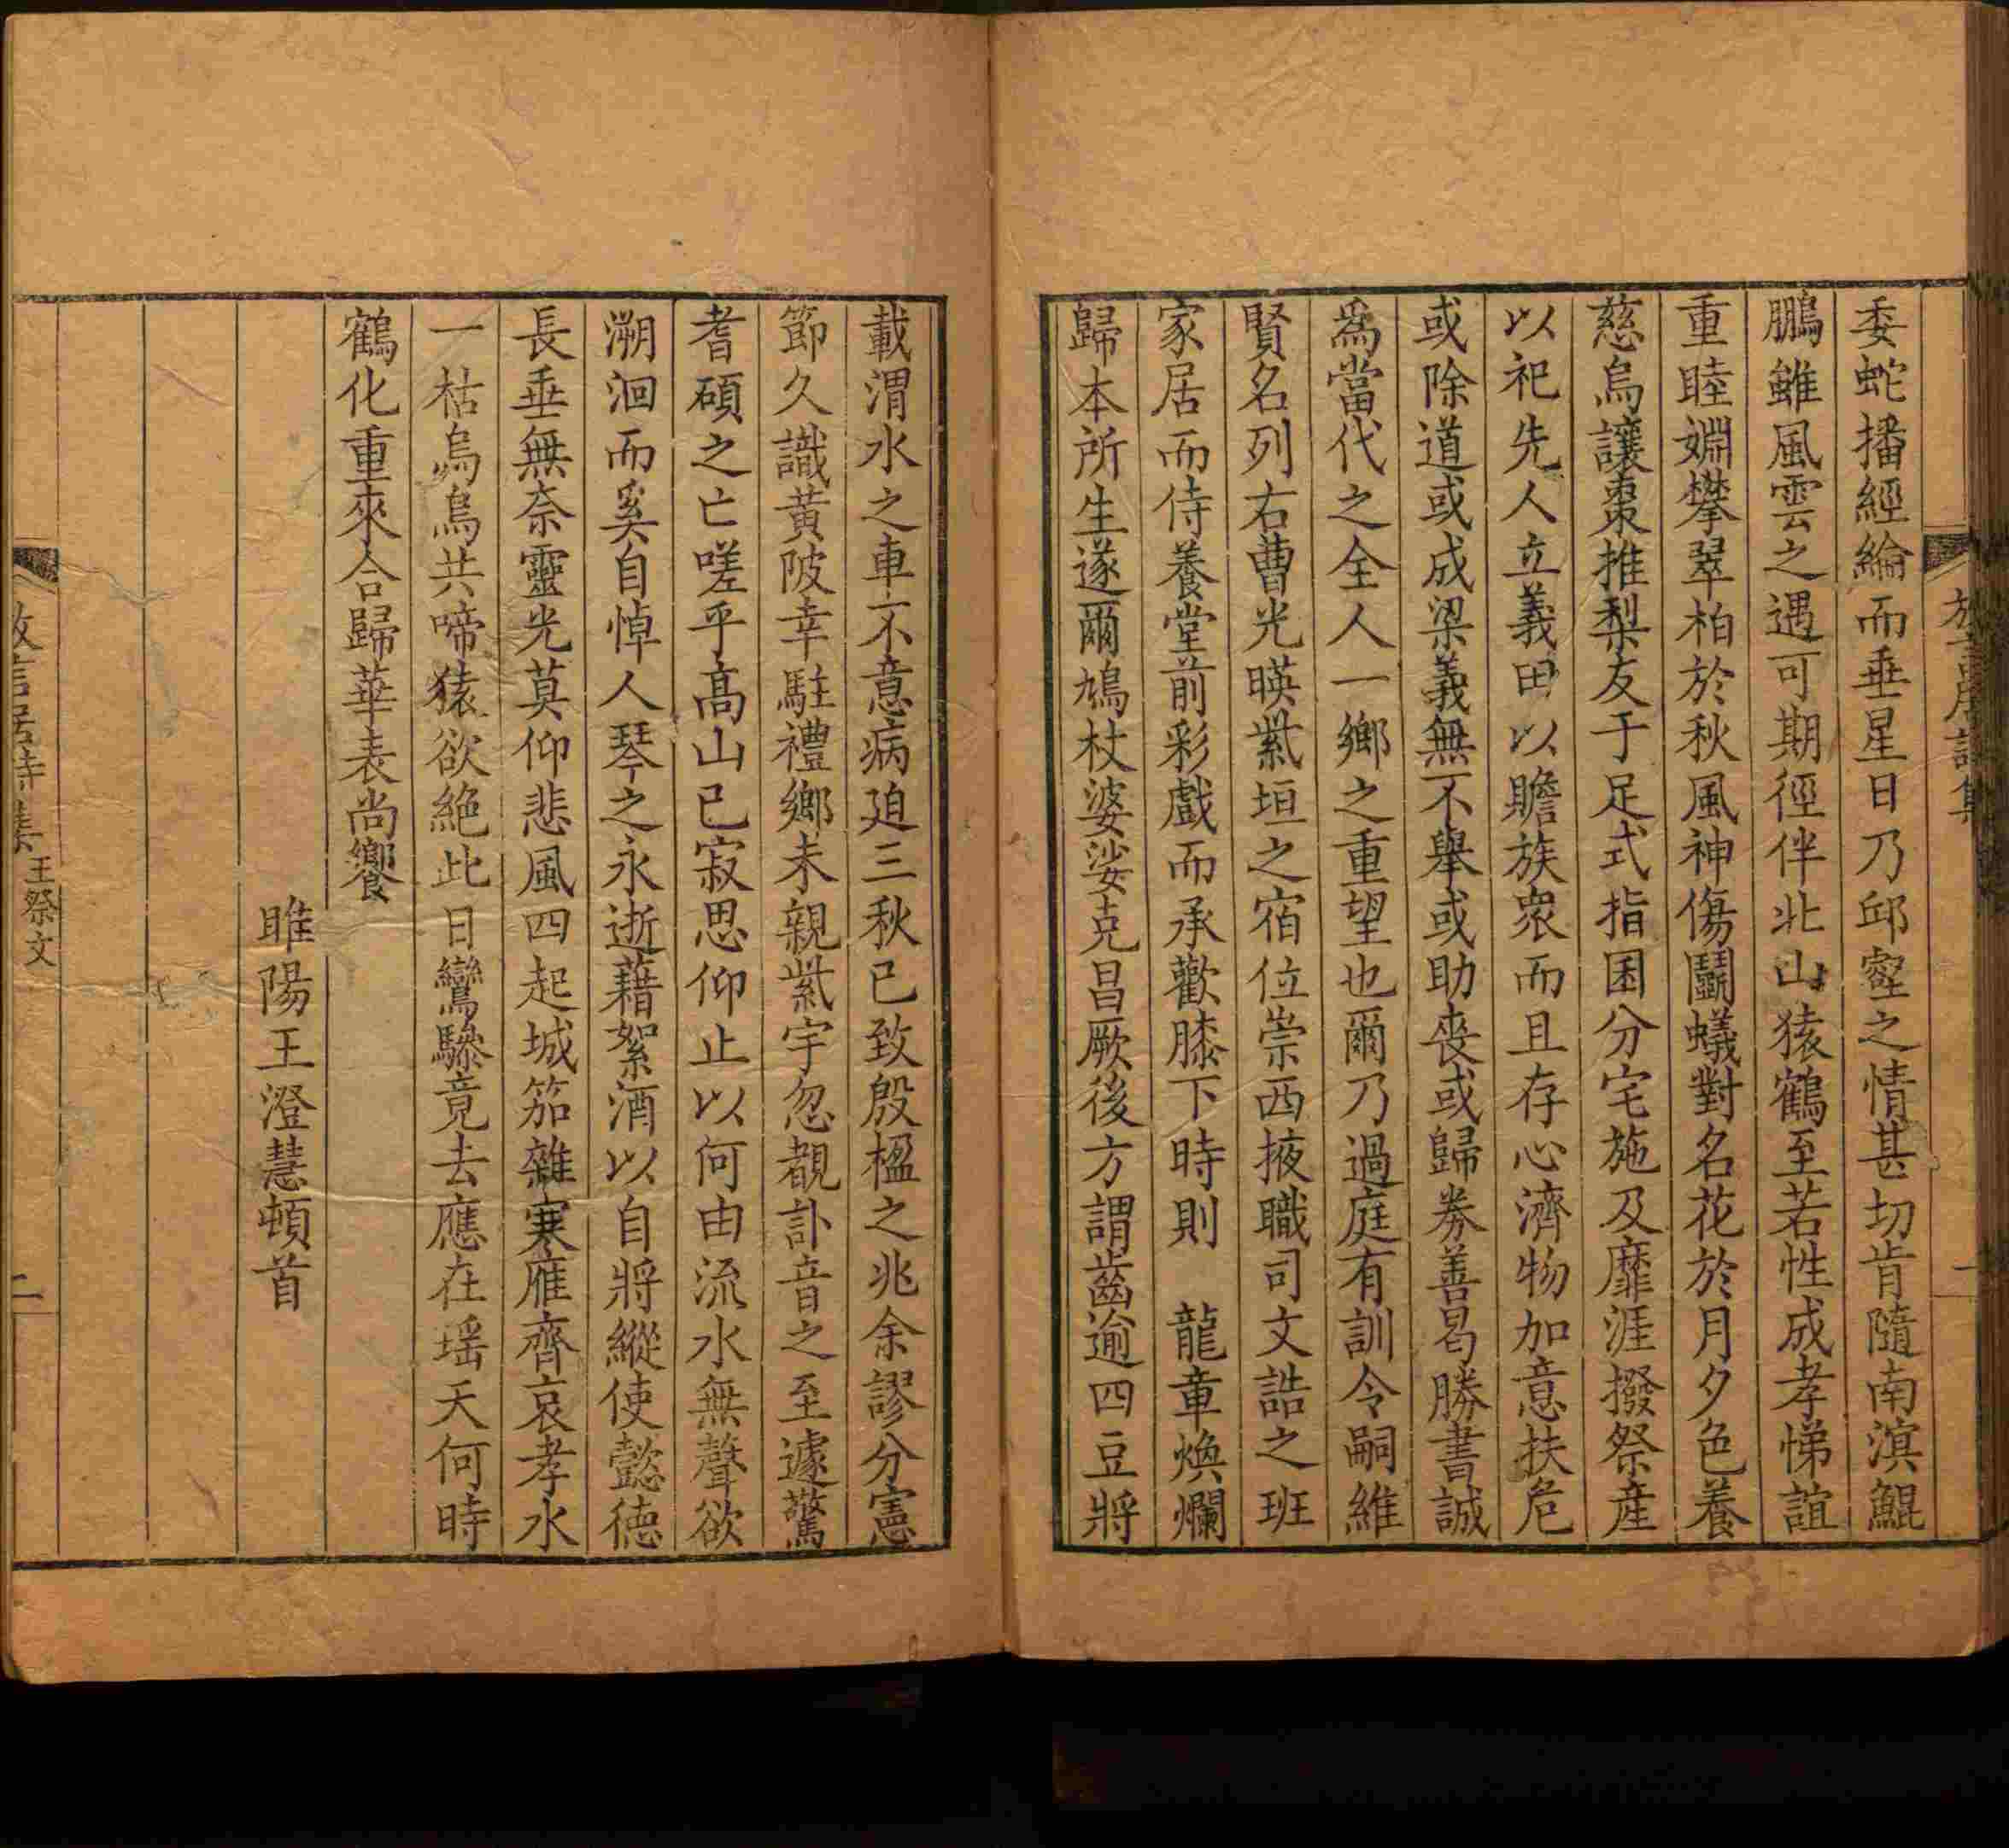 委蛇播經綸而垂星日乃邱壑之情甚切肯隨南溟鯤
鵬雖風雲之遇可期徑伴北山猿鶴至若性成孝悌誼
重睦婣攀翠柏於秋風神傷鬭蟻對名花於月夕色養
慈烏讓棗推梨友于足式指囷分宅施及靡涯撥祭産
以祀先人立義田以贍族衆而且存心濟物加意扶危
或除道或成梁義無不舉或助喪或歸劵善曷勝書誠
爲當代之全人一鄉之重望也爾乃過庭有訓令嗣維
賢名列右曹光暎紫垣之宿位崇西掖職司文誥之班
家居而侍養堂前彩戲而承歡膝下時則 龍章煥爛
歸本所生遂爾鳩杖婆娑克昌厥後方謂齒逾四豆將
載渭水之車不意病廹三秋已致殷楹之兆余謬分憲
節久識黃陂幸駐禮鄉未親紫宇忽覩訃音之至遽驚
耆碩之亡嗟乎高山已寂思仰止以何由流水無聲欲
溯洄而奚自悼人琴之永逝藉絮酒以自將縱使懿德
長垂無奈靈光莫仰悲風四起城笳雜寒雁齊哀孝水
一枯烏烏共啼猿欲絶此日鸞驂竟去應在瑶天何時
鶴化重來合歸華表尚饗
睢陽王澄慧頓首
放言居詩集 王祭文
二